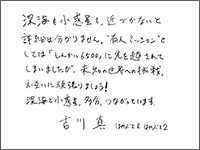 深海も小惑星も、近づかないと
詳細は分かりません。"有人ミッション"と
しては「しんかい6500」に先を越されて
しまいましたが、未知の世界への挑戦、
お互いに頑張りましょう！
深海と小惑星、多分、つながっています。
吉川 真 はやぶさ はやぶさ2